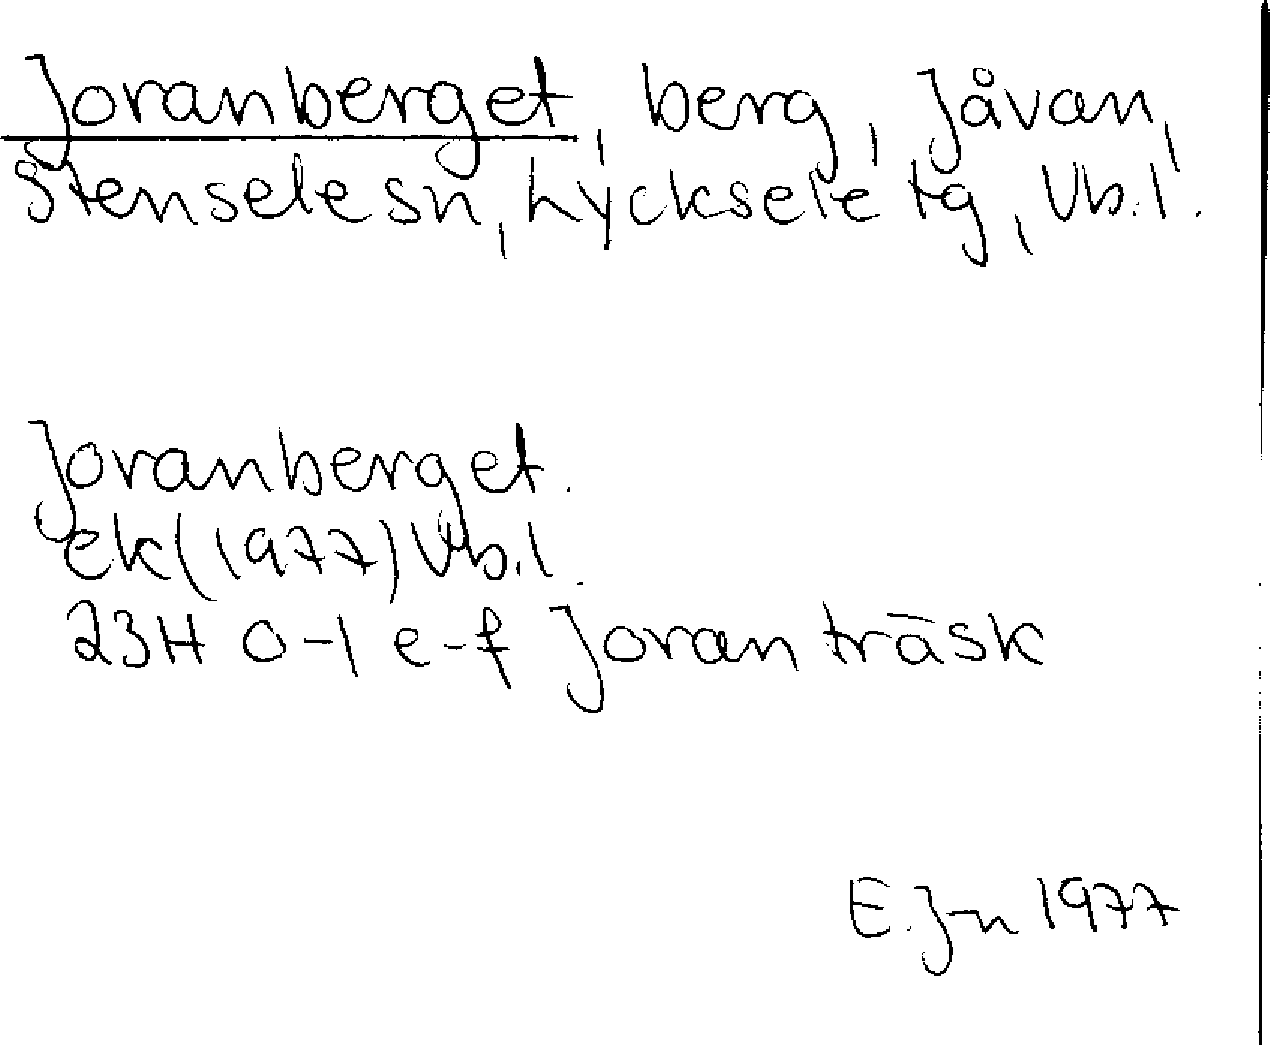 Joranberget, berg, Jåvan,
Stensele sn, Lycksele tg, Vb.l.
Joranberget.
ek(1977)Vb.l.
23H 0-1 e-f Joranträsk
E.J-n 1977